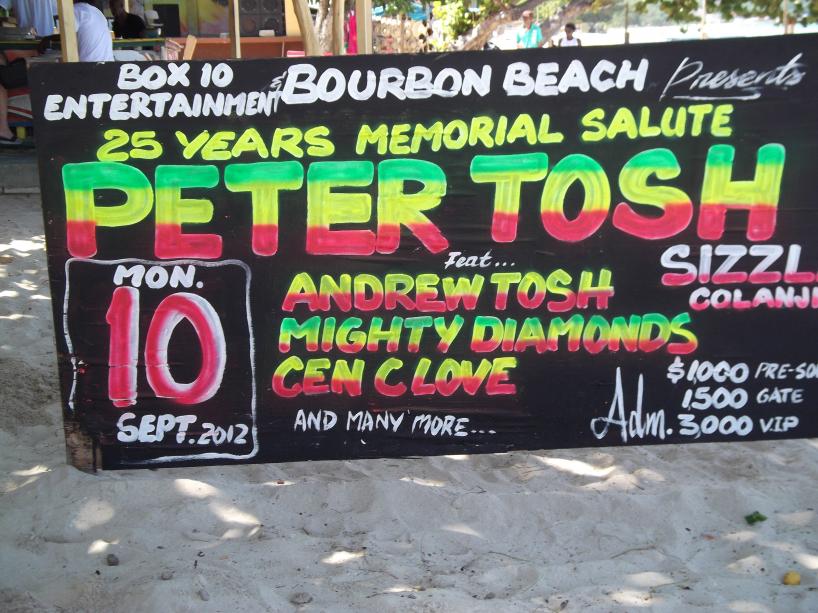 BOX 10
ENTERTAINMENT & BOURBON BEACH Presents
25 YEARS MEMORIAL SALUTE
PETER TOSH
Feat...
MON.
10
SEPT. 2012
ANDREW TOSH
MIGHTY DIAMONDS
CEN C LOVE
AND MANY MORE...
SIZZL
COLANJ
Adm. $1,000 PRE-SO
1,500 GATE
3,000 VIP